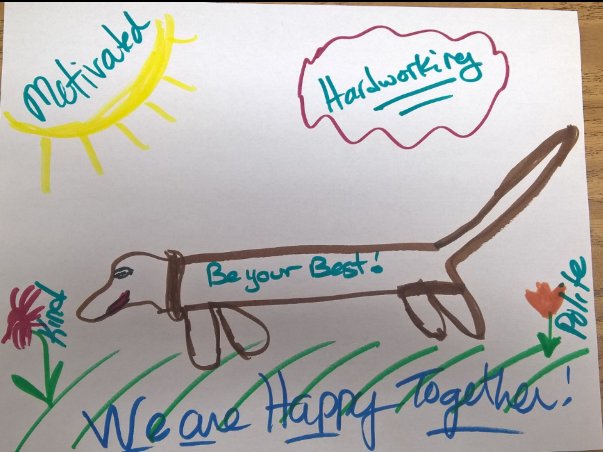 Motivated
Hardworking
Be your Best!
Kind
Polite
We are Happy Together!